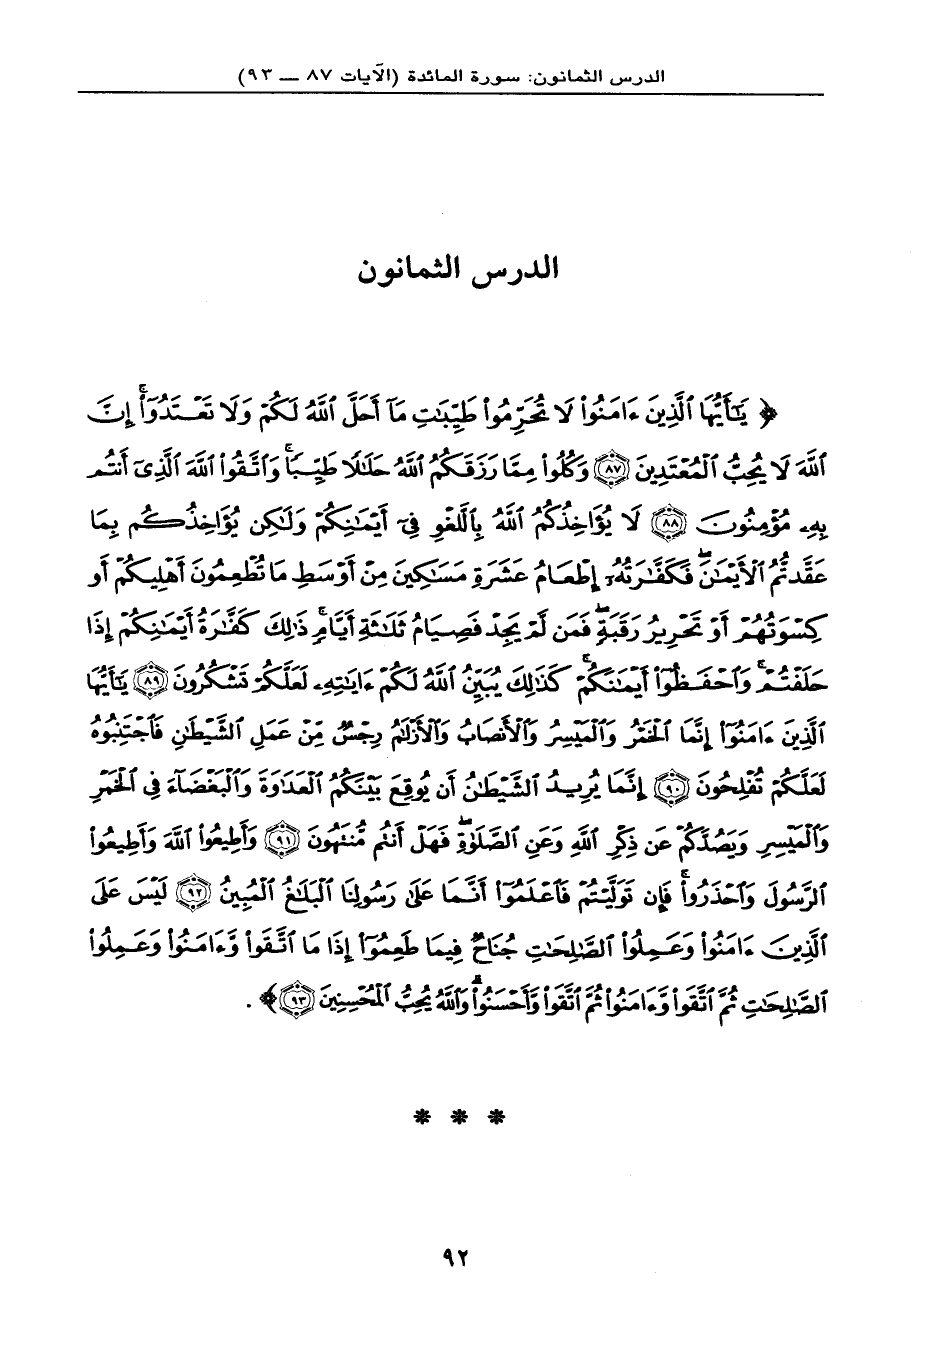 الدرس الثمانون: سورة المائدة (الآيات ٨٧ — ٩٣)
الدرس الثمانون
﴿ يَٰٓأَيُّهَا ٱلَّذِينَ ءَامَنُوا۟ لَا تُحَرِّمُوا۟ طَيِّبَٰتِ مَآ أَحَلَّ ٱللَّهُ لَكُمْ وَلَا تَعْتَدُوٓا۟ ۚ إِنَّ
ٱللَّهَ لَا يُحِبُّ ٱلْمُعْتَدِينَ ﴿٨٧﴾ وَكُلُوا۟ مِمَّا رَزَقَكُمُ ٱللَّهُ حَلَٰلًا طَيِّبًا ۚ وَٱتَّقُوا۟ ٱللَّهَ ٱلَّذِىٓ أَنتُم
بِهِۦ مُؤْمِنُونَ ﴿٨٨﴾ لَا يُؤَاخِذُكُمُ ٱللَّهُ بِٱللَّغْوِ فِىٓ أَيْمَٰنِكُمْ وَلَٰكِن يُؤَاخِذُكُم بِمَا
عَقَّدتُّمُ ٱلْأَيْمَٰنَ ۖ فَكَفَّٰرَتُهُۥٓ إِطْعَامُ عَشَرَةِ مَسَٰكِينَ مِنْ أَوْسَطِ مَا تُطْعِمُونَ أَهْلِيكُمْ أَوْ
كِسْوَتُهُمْ أَوْ تَحْرِيرُ رَقَبَةٍ ۖ فَمَن لَّمْ يَجِدْ فَصِيَامُ ثَلَٰثَةِ أَيَّامٍ ۚ ذَٰلِكَ كَفَّٰرَةُ أَيْمَٰنِكُمْ إِذَا
حَلَفْتُمْ ۚ وَٱحْفَظُوٓا۟ أَيْمَٰنَكُمْ ۚ كَذَٰلِكَ يُبَيِّنُ ٱللَّهُ لَكُمْ ءَايَٰتِهِۦ لَعَلَّكُمْ تَشْكُرُونَ ﴿٨٩﴾ يَٰٓأَيُّهَا
ٱلَّذِينَ ءَامَنُوٓا۟ إِنَّمَا ٱلْخَمْرُ وَٱلْمَيْسِرُ وَٱلْأَنصَابُ وَٱلْأَزْلَٰمُ رِجْسٌ مِّنْ عَمَلِ ٱلشَّيْطَٰنِ فَٱجْتَنِبُوهُ
لَعَلَّكُمْ تُفْلِحُونَ ﴿٩٠﴾ إِنَّمَا يُرِيدُ ٱلشَّيْطَٰنُ أَن يُوقِعَ بَيْنَكُمُ ٱلْعَدَٰوَةَ وَٱلْبَغْضَآءَ فِى ٱلْخَمْرِ
وَٱلْمَيْسِرِ وَيَصُدَّكُمْ عَن ذِكْرِ ٱللَّهِ وَعَنِ ٱلصَّلَوٰةِ ۖ فَهَلْ أَنتُم مُّنتَهُونَ ﴿٩١﴾ وَأَطِيعُوا۟ ٱللَّهَ وَأَطِيعُوا۟
ٱلرَّسُولَ وَٱحْذَرُوا۟ ۚ فَإِن تَوَلَّيْتُمْ فَٱعْلَمُوٓا۟ أَنَّمَا عَلَىٰ رَسُولِنَا ٱلْبَلَٰغُ ٱلْمُبِينُ ﴿٩٢﴾ لَيْسَ عَلَى
ٱلَّذِينَ ءَامَنُوا۟ وَعَمِلُوا۟ ٱلصَّٰلِحَٰتِ جُنَاحٌ فِيمَا طَعِمُوٓا۟ إِذَا مَا ٱتَّقَوا۟ وَّءَامَنُوا۟ وَعَمِلُوا۟
ٱلصَّٰلِحَٰتِ ثُمَّ ٱتَّقَوا۟ وَّءَامَنُوا۟ ثُمَّ ٱتَّقَوا۟ وَّأَحْسَنُوا۟ ۗ وَٱللَّهُ يُحِبُّ ٱلْمُحْسِنِينَ ﴿٩٣﴾ ﴾ .
* * *
٩٢